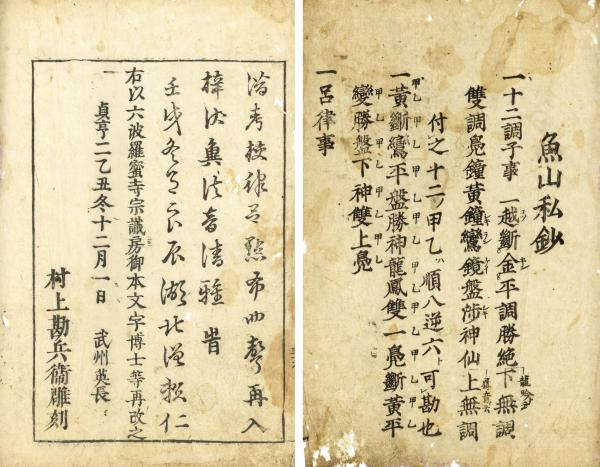 魚山私鈔
一十二調子事 一越斷金平調勝絶下無調
雙調鳧鐘黃鐘鸞鏡盤渉神仙上無調
付之十二ノ甲乙順八逆六可勘也
一黃斷鸞平盤勝神龍鳳雙一鳧斷黃平
變勝盤下神雙上鳧
一呂律事
考校律呂點 四聲再入
梓 音清雅 昔
壬戌冬 良辰湖北 仁
右以六波羅蜜寺宗識房御本文字博士等再改之
貞亨二乙丑冬十二月一日 武州英長
村上勘兵衞雕刻